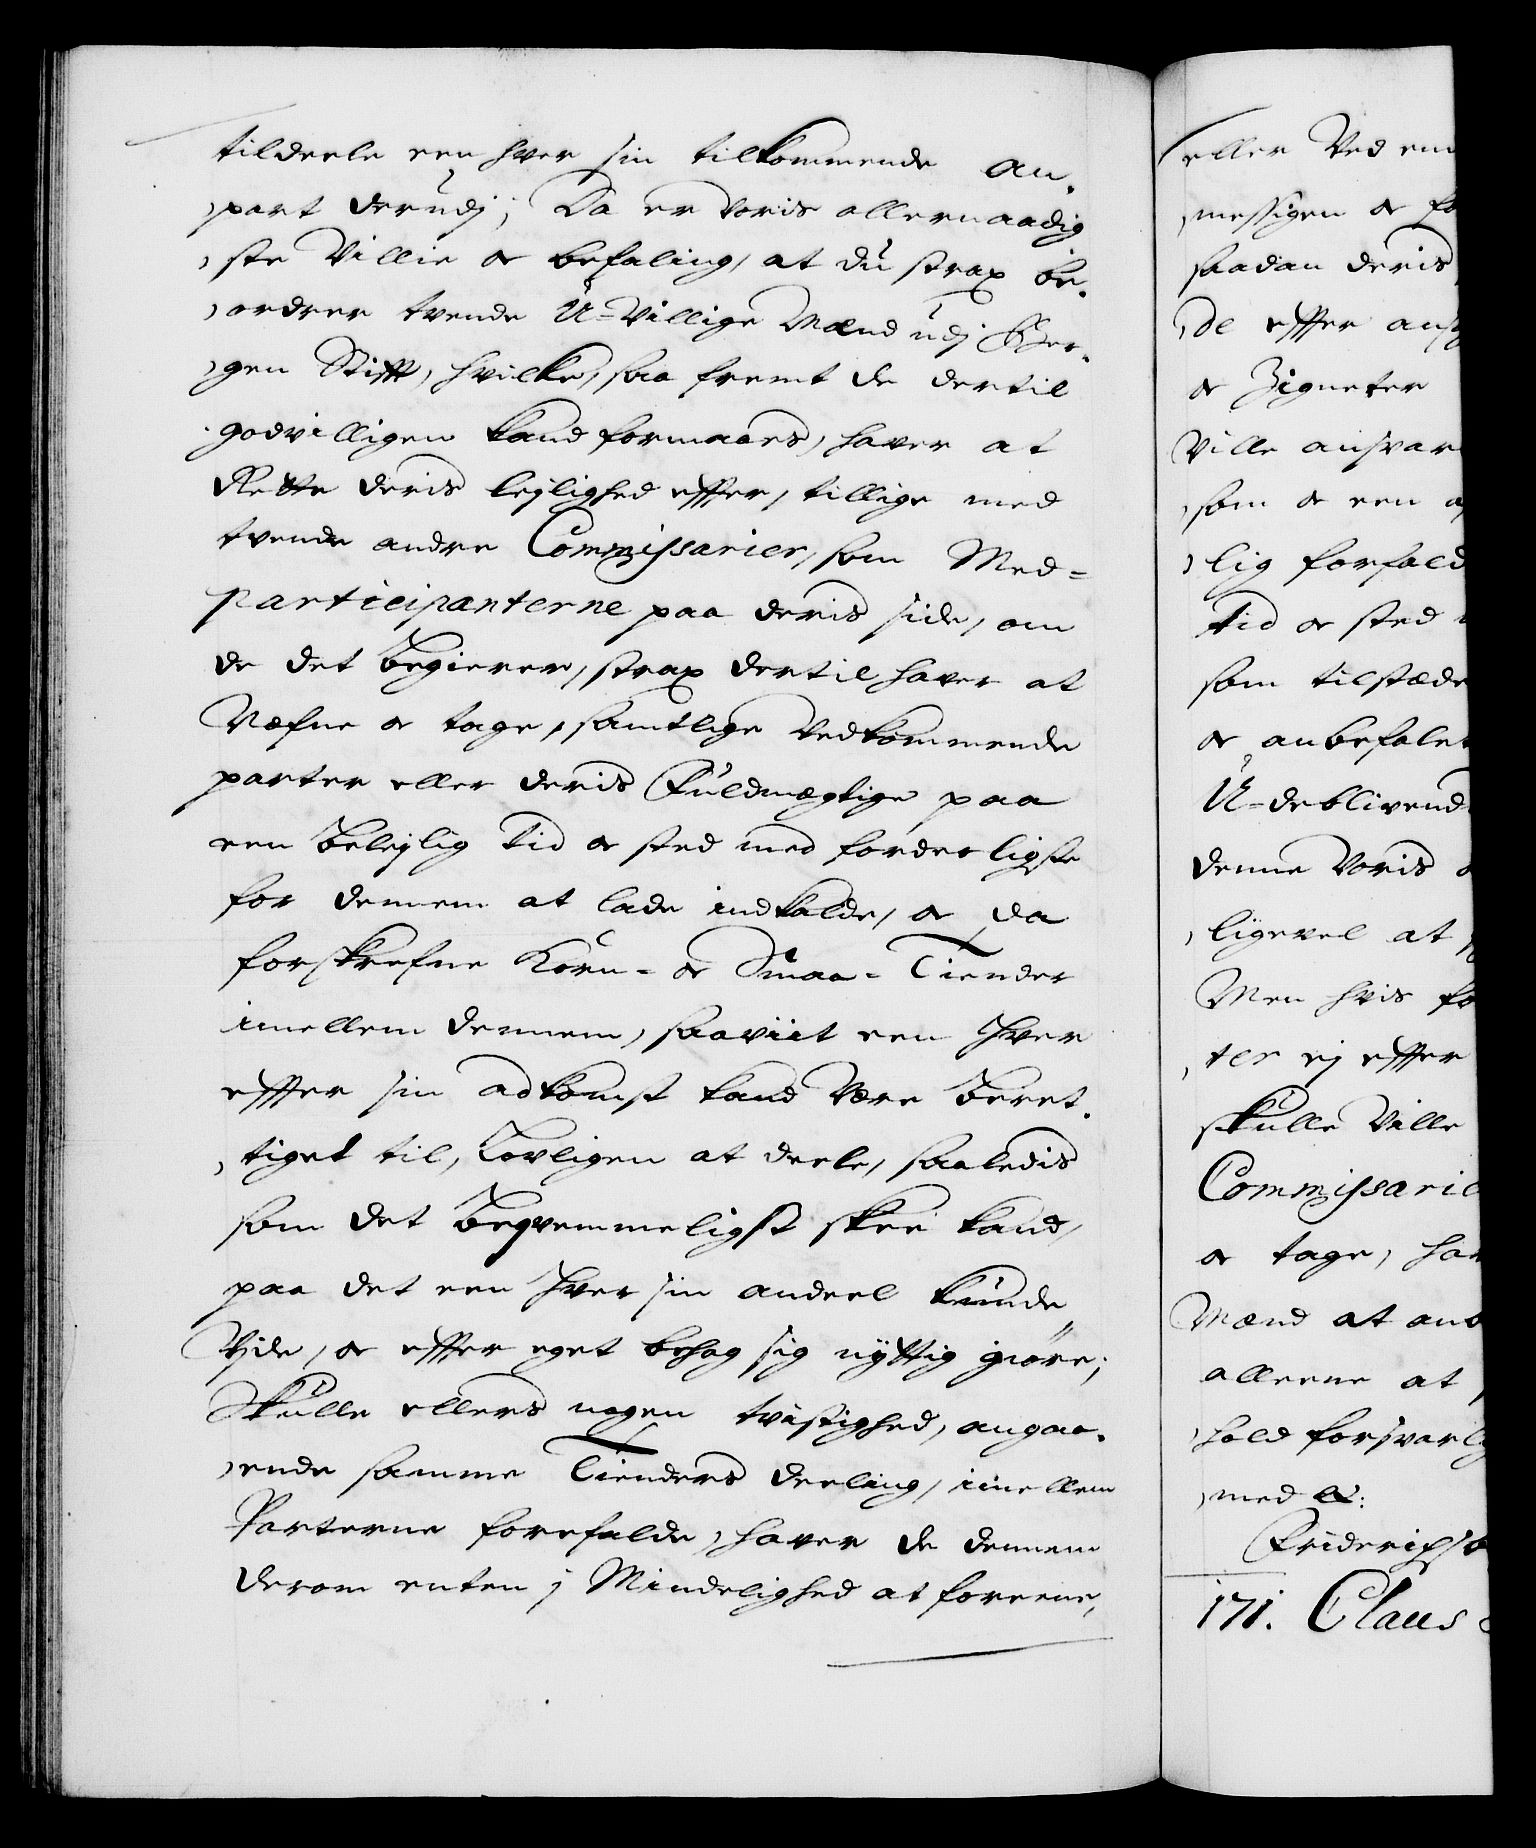 tildeele een hver sin tilkommende an-
part derudj; Da er voris allernaadig
ste Villie og befaling, at du strax be-
ordrer tvende U-Villige Mænd udj Ber-
gen Stift, hvilke, saa fremt de dertil
godvilligen kand formaaes, haver at
Rette deris lejlighed effter, tillige med
tvende andre Commissarier, som Med-
Participanterne paa deris side, om
de det begierer, strax dertil haver at
Nefne og tage, samtlige Vedkommende
parter eller deris Fuldmægtige paa
een belejlig Tid og sted med forderligste
for dennem at lade indkalde, og da
forskrefne Korn- og Smaa-Tiender
imellem dennem, saaviit een hver
effter sin adkomst kand Være beret-
tiget til, Lovligen at deele, saaledis
som det beqvemmeligst skee kand,
paa det een hver sin andeel kunde
Vide, og effter eget behag sig nyttig giøre;
Skulle ellers nogen tvistighed, angaa-
ende samme Tienders deeling, imellem
Parterne forefalde, haver de dennem
derom enten j Mindelighed at foreene,
eller Ved
messigen og
saadan deris
de effter
og Zigneter
Ville ansvar
som og een
lig forfald
Tid og sted
som tilstæde
og anbefalet
U-deblivend
denne Voris
ligevel at
Men hvis
ter ej effter
skulle Ville
Commissarie
og tage, ha
Mænd at
alleene at
hold forsvarlig
med &:
Friderichs
171. Claus